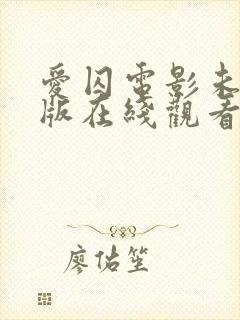 愛囚電影未
版在綫觀看
廖佑笙